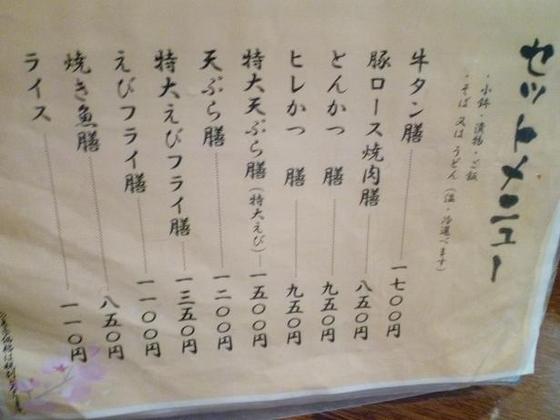 セットメニュー
・小鉢・漬物・ご飯
・そば 又は うどん（温・冷選べます）
牛タン膳 一七〇〇円
豚ロース焼肉膳 八五〇円
とんかつ 膳 九五〇円
ヒレかつ 膳 九五〇円
特大天ぷら膳（特大えび） 一五〇〇円
天ぷら膳 一二〇〇円
特大えびフライ膳 一三五〇円
えびフライ膳 一一〇〇円
焼き魚膳 八五〇円
ライス 一一〇円